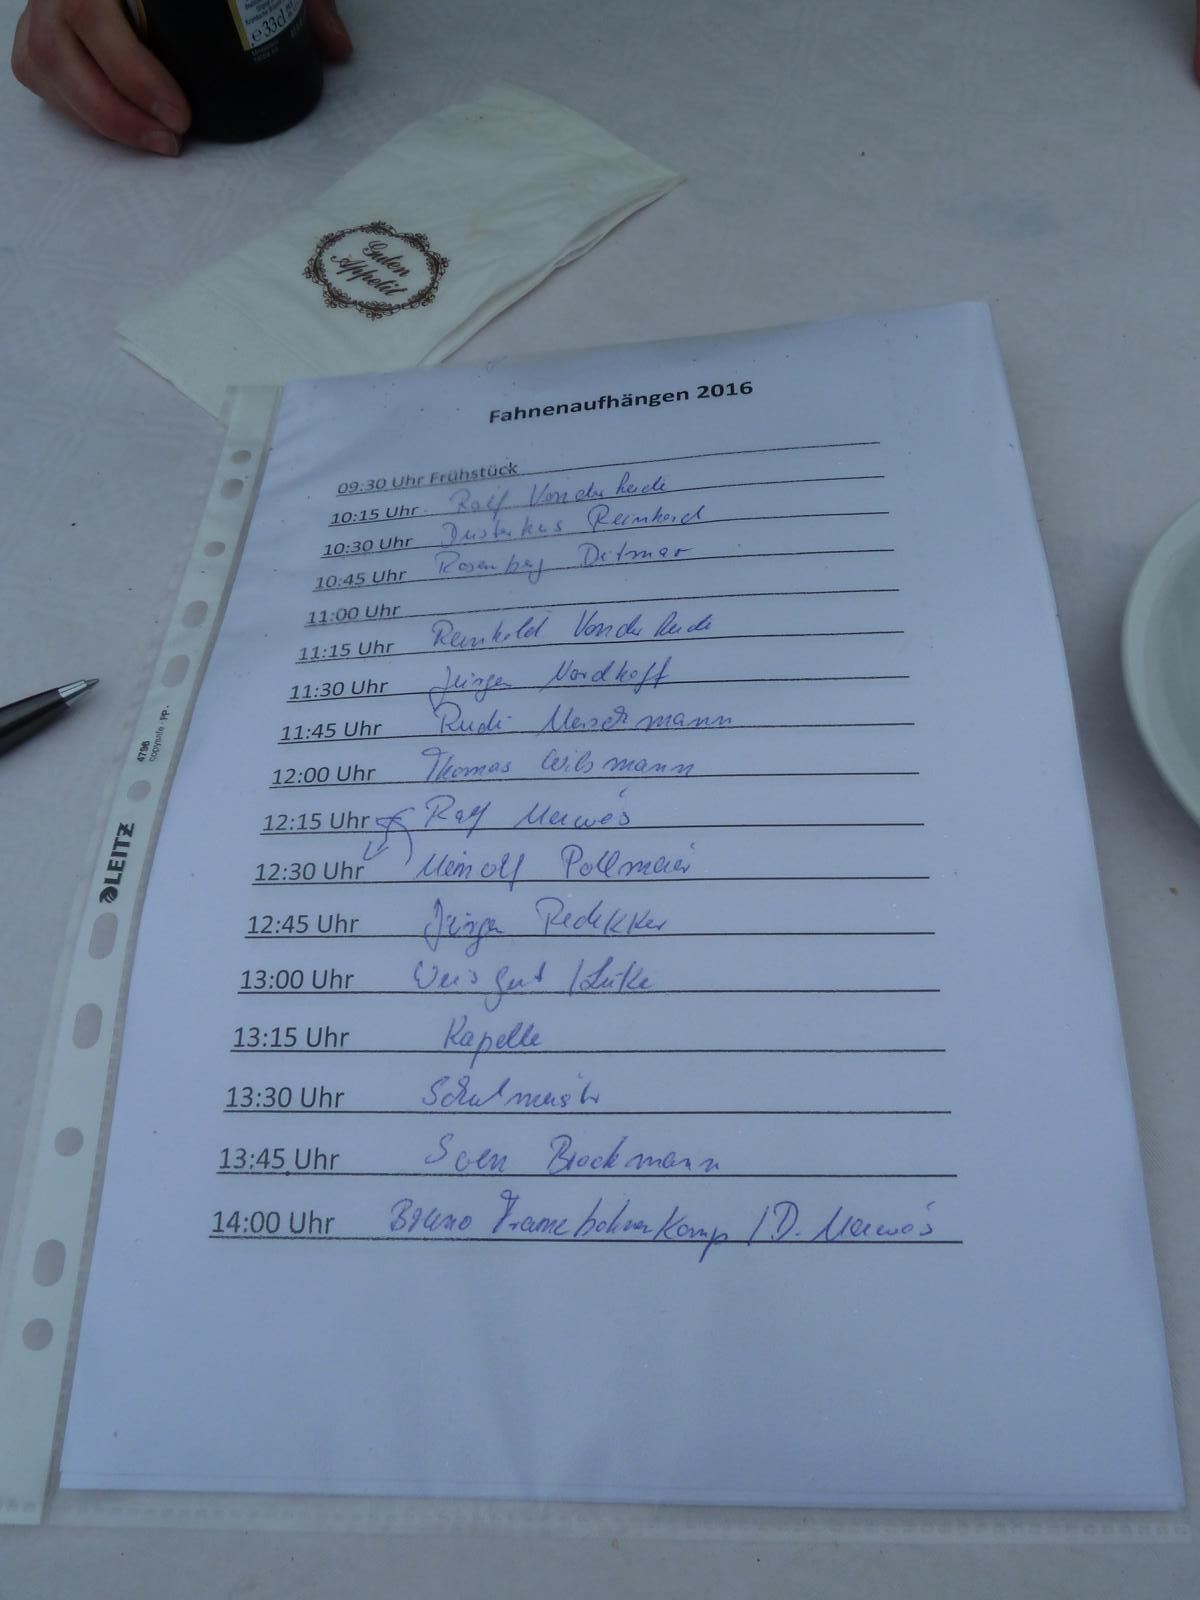 e33cl
Guten
Appetit
Fahnenaufhängen 2016
09:30 Uhr Frühstück
10:15 Uhr Ralf Vonderheide
10:30 Uhr Reinhard
10:45 Uhr Rosenberg Ditmar
11:00 Uhr
11:15 Uhr Reinhold Vonderheide
11:30 Uhr Jürgen Nordhoff
11:45 Uhr Rudi Merschmann
12:00 Uhr Thomas Wibsmann
12:15 Uhr Ralf Merwès
12:30 Uhr Meinolf Pollmeier
12:45 Uhr Jürgen
13:00 Uhr
13:15 Uhr Kapelle
13:30 Uhr Schulmeister
13:45 Uhr Sven Brockmann
14:00 Uhr Bruno / D. Merwès
4796
copysafe · PP.
LEITZ